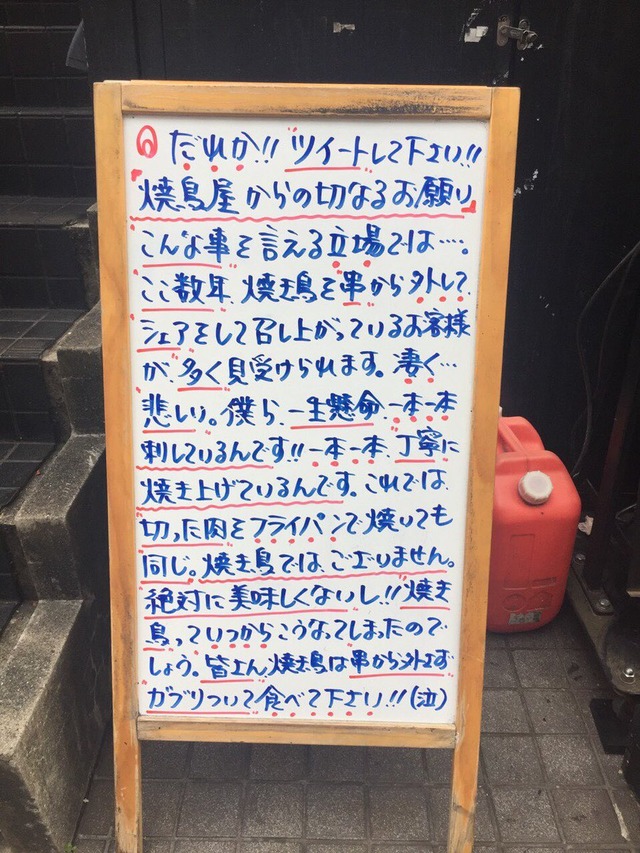 だれか!! ツイートして下さい!!
焼鳥屋からの切なるお願い
こんな事を言える立場では…。
ここ数年、焼き鳥を串から外して、
シェアをして召し上がっているお客様
が、多く見受けられます。凄く…
悲しい。僕ら、一生懸命、一本一本
刺しているんです!! 一本一本、丁寧に
焼き上げているんです。これでは、
切った肉をフライパンで焼いても
同じ。焼き鳥では、ございません。
絶対に美味しくないし!! 焼き
鳥っていつからこうなってしまったので
しょう。皆さん、焼き鳥は串から外さず
ガブリついて食べて下さい!! (泣)